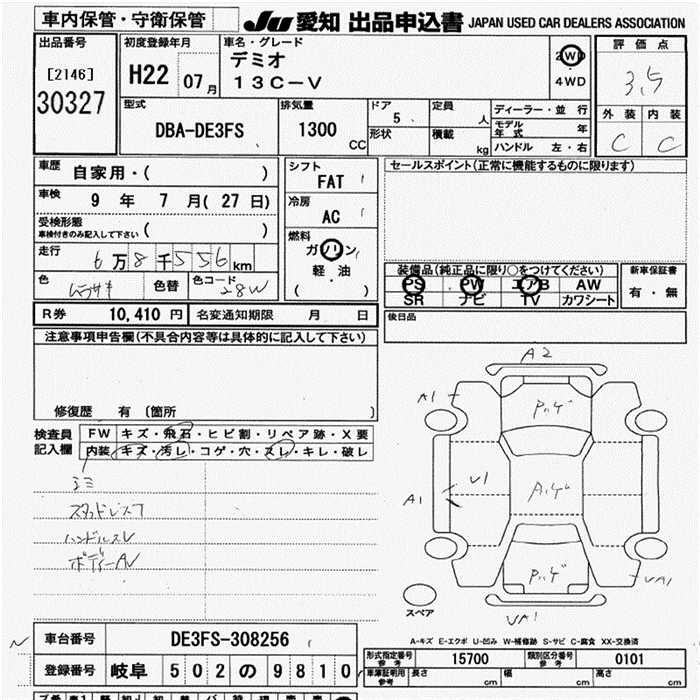 車内保管・守衛保管
JU 愛知 出品申込書 JAPAN USED CAR DEALERS ASSOCIATION
出品番号
[2146]
30327
初度登録年月
H22 07月
車名・グレード
デミオ
13C-V
2WD
4WD
評価点
3.5
外装 内装
C C
型式
DBA-DE3FS
排気量
1300 CC
ドア 5
形状
定員 人
積載 kg
ディーラー・並行
モデル年式 年
ハンドル 左・右
車歴
自家用・( )
車検
9年 7月(27日)
受検形態
車検付きのみ記入して下さい ( )
走行
6万8千556km
色 ムラサキ 色替
色コード 28W
シフト
FAT
冷房
AC
燃料
ガソリン
軽・油
( )
セールスポイント(正常に機能するものに限ります)
装備品(純正品に限り○をつけてください)
PS PW エアB AW
SR ナビ TV カワシート
新車保証書
有・無
後日品
R券 10,410円 名変通知期限 月 日
注意事項申告欄(不具合内容等は具体的に記入して下さい)
修復歴 有 〔箇所 〕
検査員記入欄
FW キズ・飛石・ヒビ割・リペア跡・X要
内装 キズ・汚レ・コゲ・穴・スレ・キレ・破レ
スタッドレス7
ハンドルスレ
A2
A1
A1
U1
UA1
UA1
スペア
A-キズ E-エクボ U-凹み W-補修跡 S-サビ C-腐食 XX-交換済
車台番号 DE3FS-308256
登録番号 岐阜 502の9810
型式指定番号 参考 15700
類別区分番号 参考 0101
車庫証明用 参考 長さ cm 幅 cm 高さ cm